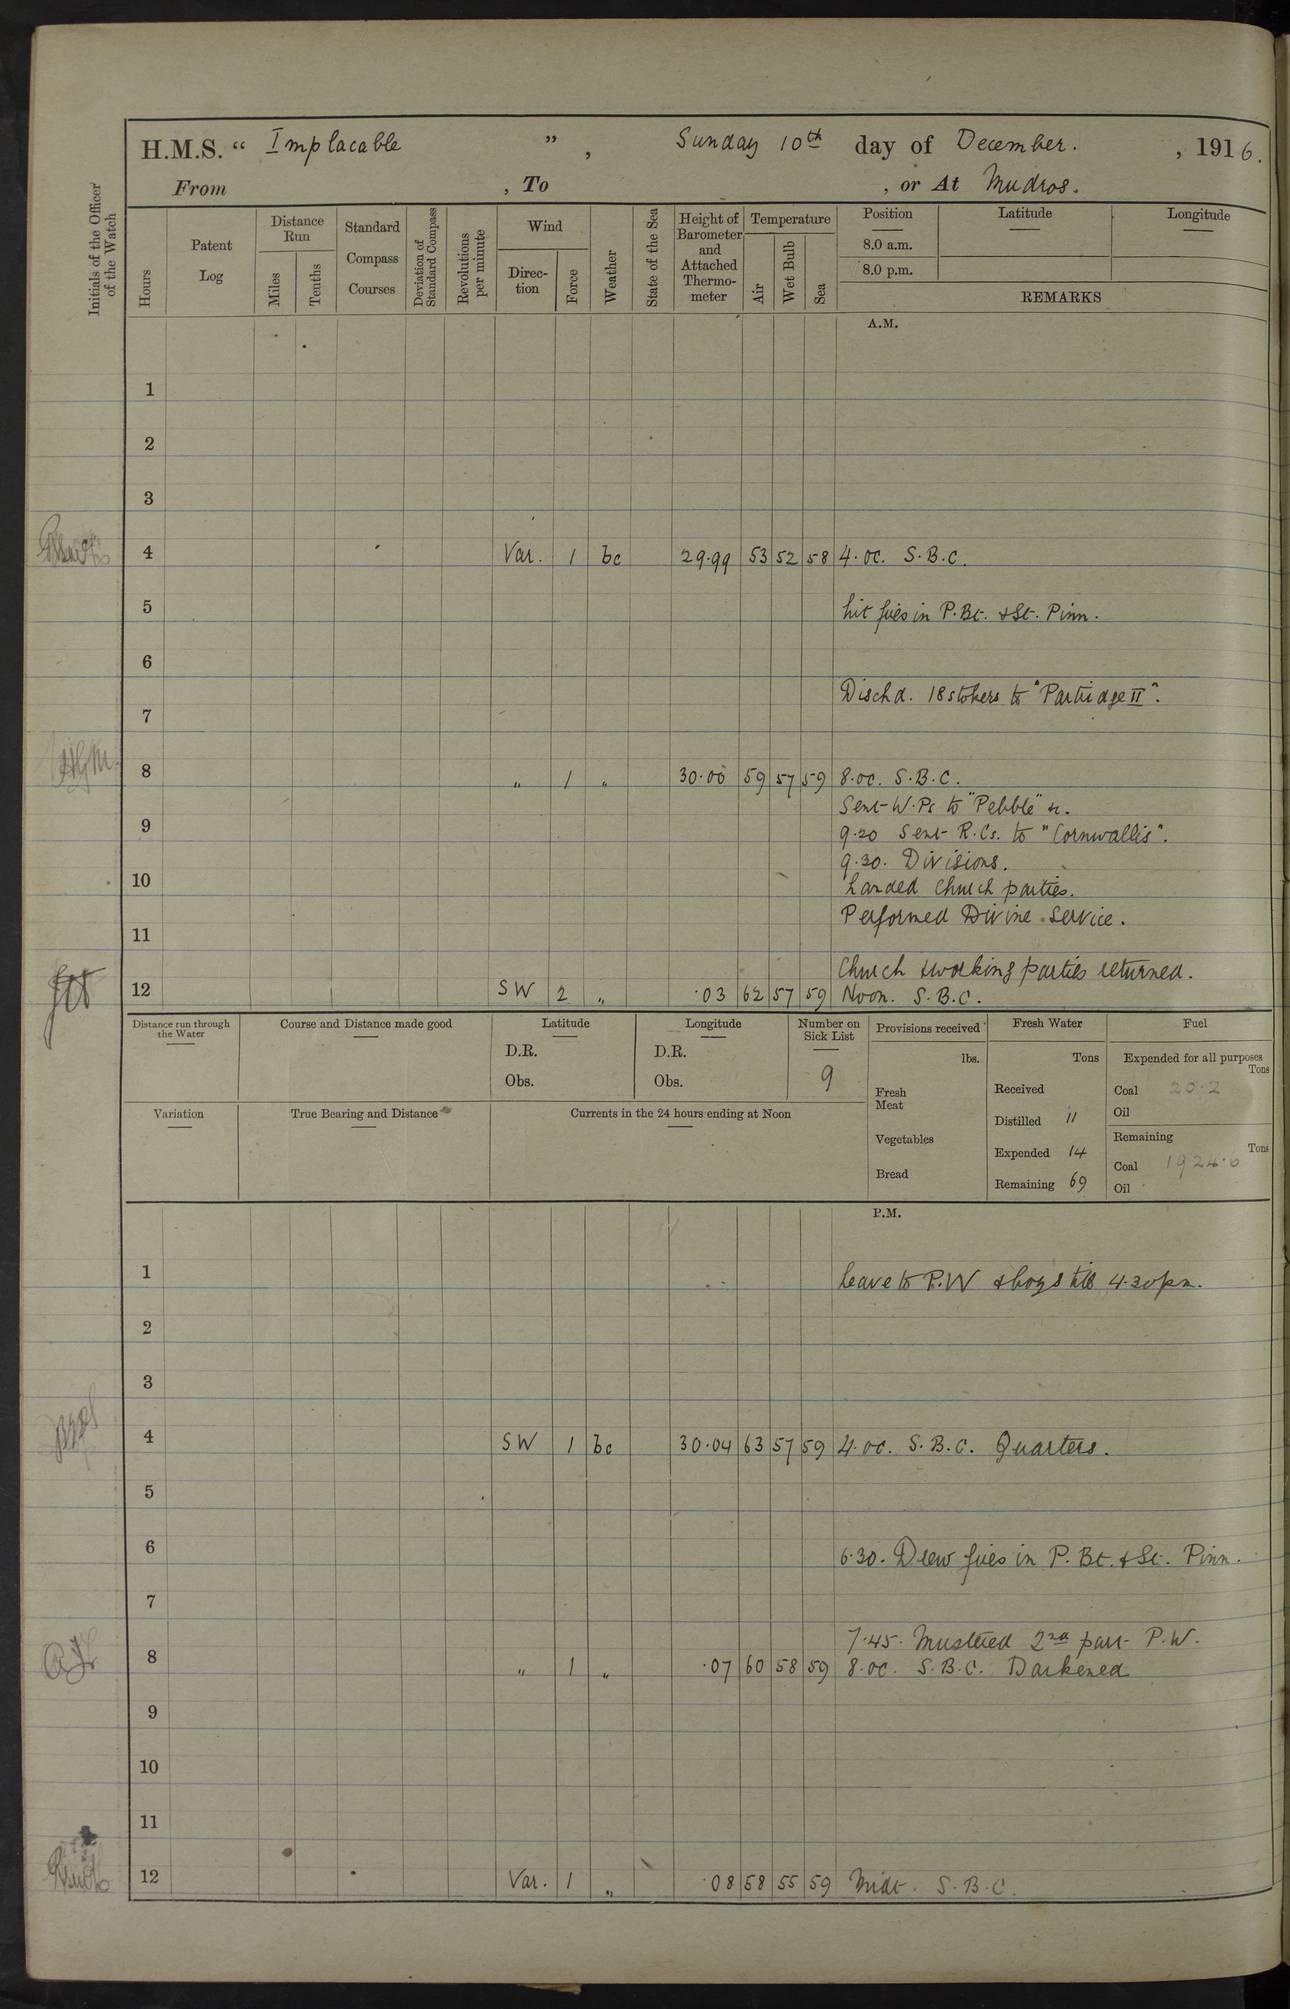 H.M.S. “ Implacable ”, Sunday 10th day of December. , 1916.
From , To , or At Mudros.
Initials of the Officer of the Watch
Hours
Patent Log
Distance Run
Miles
Tenths
Standard Compass Courses
Deviation of Standard Compass
Revolutions per minute
Wind
Direction
Force
Weather
State of the Sea
Height of Barometer and Attached Thermometer
Temperature
Air
Wet Bulb
Sea
Position Latitude Longitude
8.0 a.m.
8.0 p.m.
REMARKS
A.M.
1
2
3
4 Var. 1 bc 29.99 53 52 58 4.oc. S.B.C.
5 Lit fires in P.Bt. & St. Pinn.
6
Dischd. 18 stokers to "Partridge II".
7
8 „ 1 „ 30.00 59 57 59 8.oc. S.B.C.
Sent W.Ps to "Pebble" &c.
9 9.20 Sent R.Cs. to "Cornwallis".
9.30. Divisions.
10 Landed Church parties.
Performed Divine Service.
11
Church & working parties returned.
12 SW 2 „ .03 62 57 59 Noon. S.B.C.
Distance run through the Water
Course and Distance made good
Latitude
D.R.
Obs.
Longitude
D.R.
Obs.
Number on Sick List
9
Provisions received
lbs.
Fresh Meat
Vegetables
Bread
Fresh Water
Tons
Received
Distilled 11
Expended 14
Remaining 69
Fuel
Expended for all purposes
Tons
Coal 20.2
Oil
Remaining
Tons
Coal 1924.6
Oil
Variation
True Bearing and Distance
Currents in the 24 hours ending at Noon
P.M.
1 Leave to P.W & boys till 4.30pm.
2
3
4 SW 1 bc 30.04 63 57 59 4.oc. S.B.C. Quarters.
5
6 6.30. Drew fires in P. Bt. & St. Pinn.
7
7.45. Mustered 2nd part P.W.
8 „ 1 „ .07 60 58 59 8.oc. S.B.C. Darkened
9
10
11
12 Var. 1 „ .08 58 55 59 Midt. S.B.C.